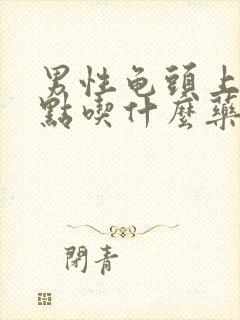 男性龟頭上
點喫什麼藥
閉青